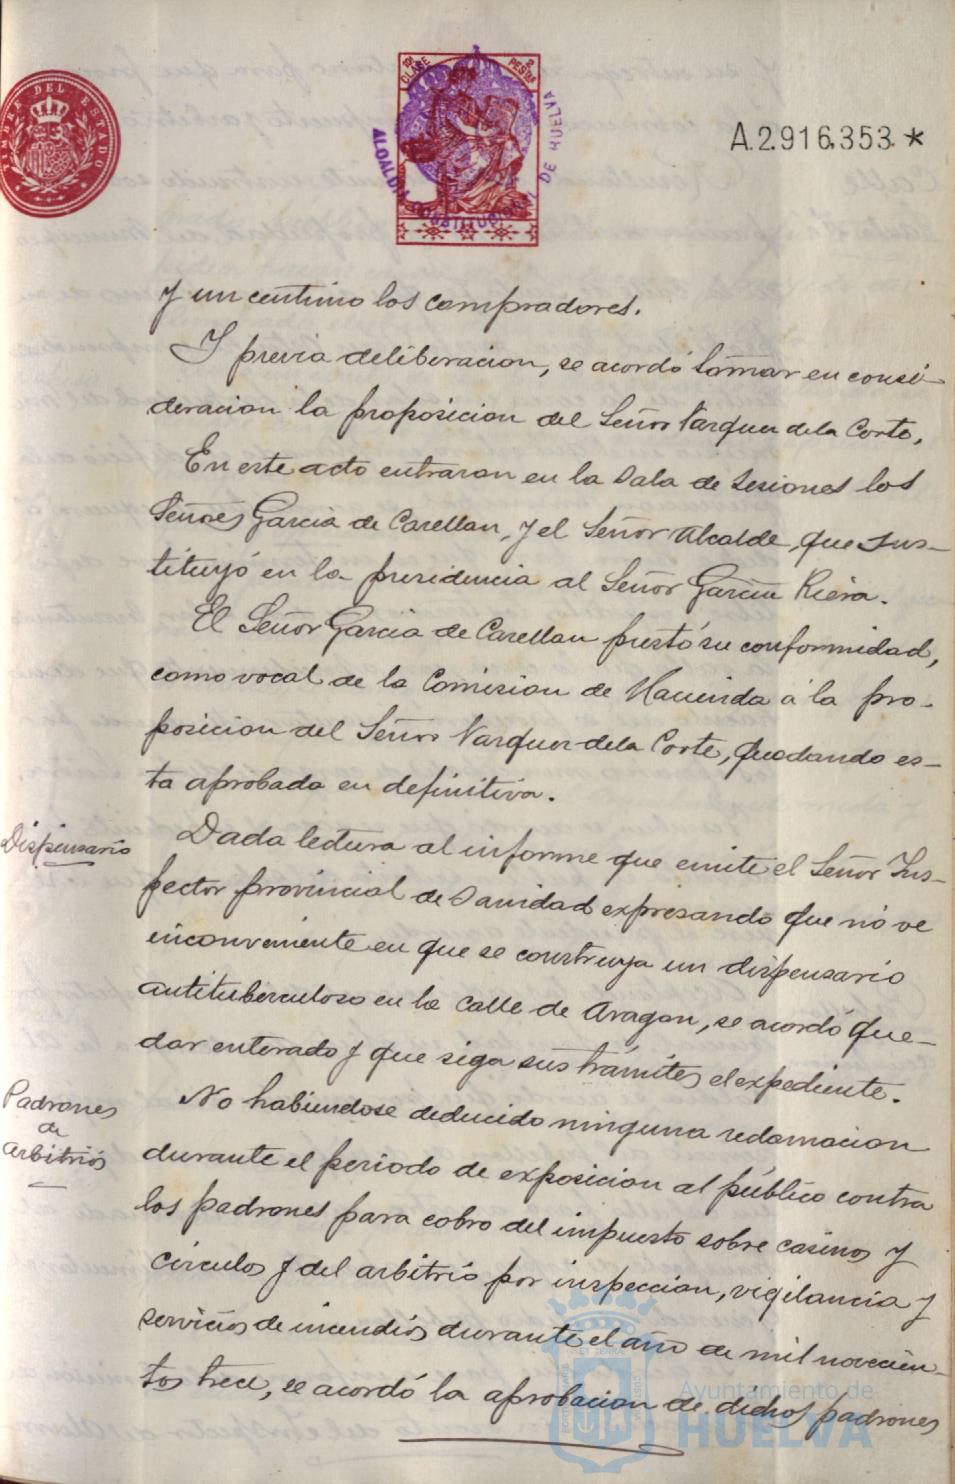 TIMBRE DEL ESTADO
10ª CLASE
2 PESTAS
ALCALDIA CONSTITUCIONAL DE HUELVA
A.2.916,353.*
y un centimo los compradores.
Y previa deliberacion, se acordó tomar en consi-
deracion la proposicion del Señor Vazquez de la Corte.
En este acto entraron en la Sala de Sesiones los
Señores Garcia de Carellan, y el Señor Alcalde, que sus-
tituyó en la presidencia al Señor Garcia Riera.
El Señor Garcia de Carellan prestó su conformidad,
como vocal de la Comision de Hacienda á la pro-
posicion del Señor Vazquez de la Corte, quedando es-
ta aprobada en definitiva.
Dispensario
Dada lectura al informe que emite el Señor Ins-
pector provincial de Sanidad expresando que no ve
inconveniente en que se construya un dispensario
antituberculoso en la calle de Aragon, se acordó que-
dar enterado y que siga sus trámites el expediente.
Padrones
de
arbitrios
No habiendose deducido ninguna reclamacion
durante el periodo de exposicion al público contra
los padrones para cobro del impuesto sobre casinos y
circulos y del arbitrio por inspeccion, vigilancia y
servicios de incendios durante el año de mil novecien-
tos trece, se acordó la aprobacion de dichos padrones
Ayuntamiento de
HUELVA